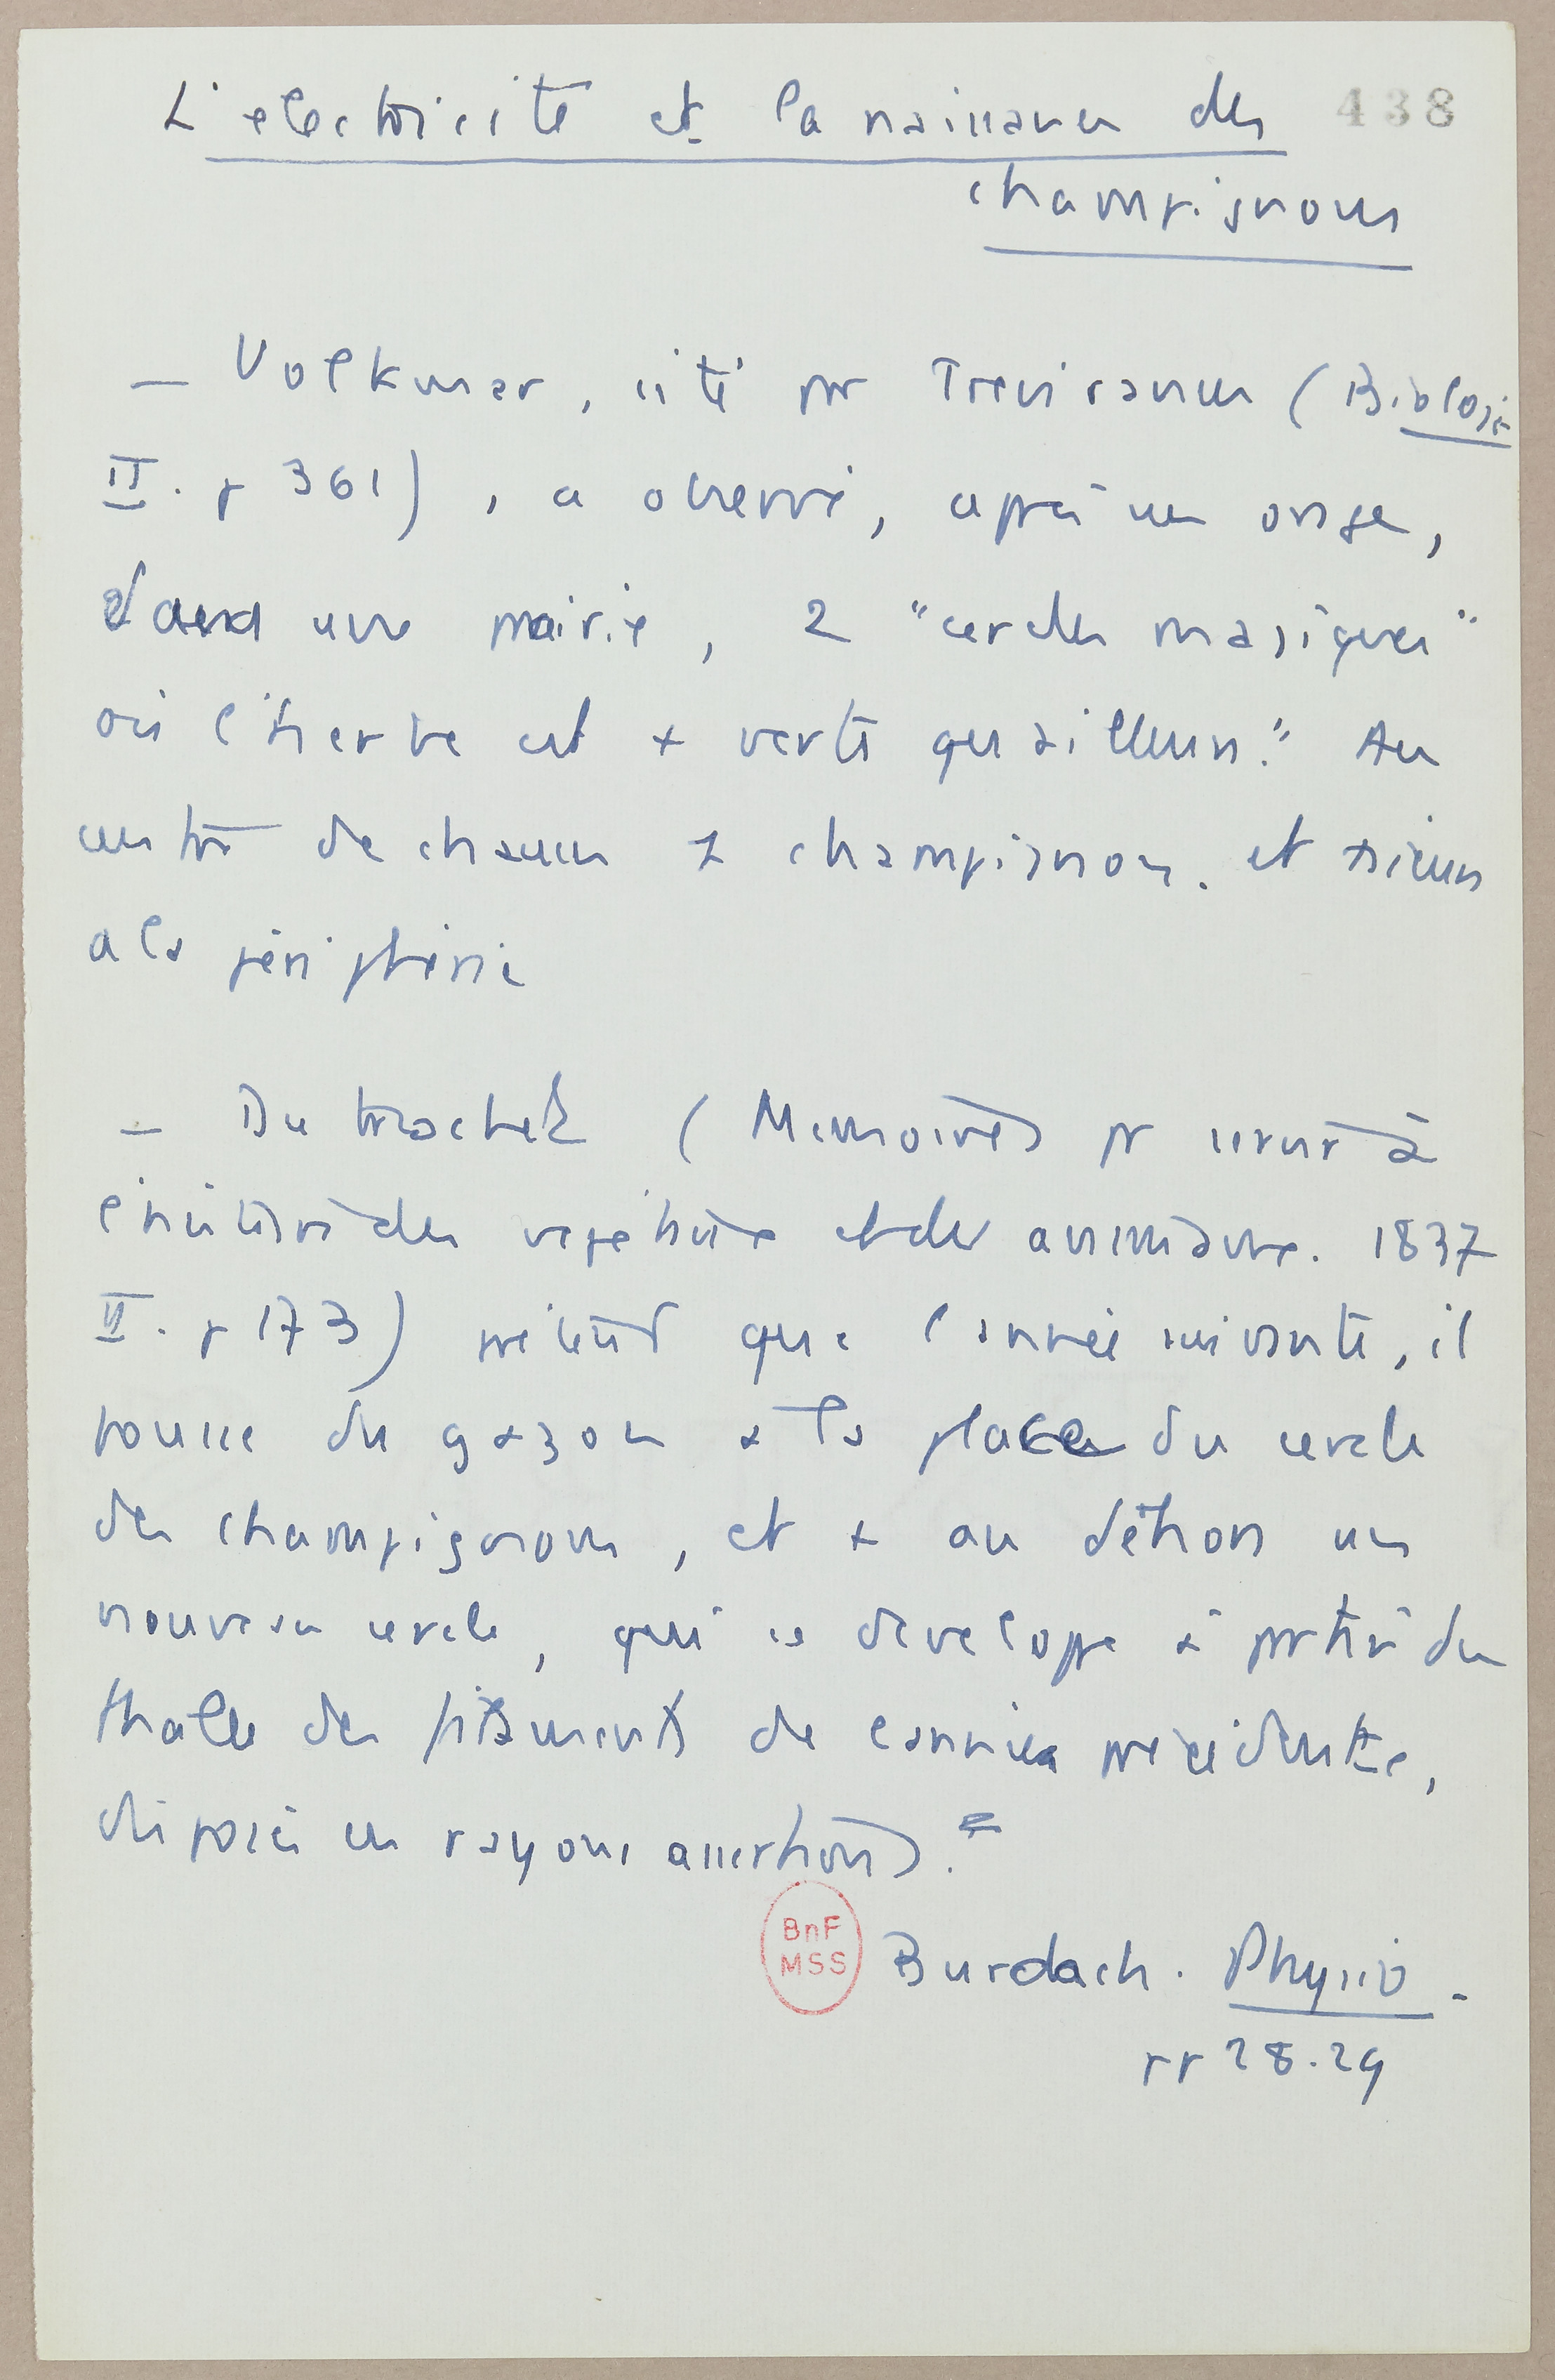 L'electricité et la naissance des 438
champignons
— Volkmar, cité pr Treviranus (Biologie
II. p 361), a observé, après un orage,
dans une prairie, 2 "cercles magiques"
où l'herbe est + verte qu'ailleurs." Au
centre de chacun 1 champignon. et
a la périphérie
— Dutrochet (Memoires pr servir à
l'histoire des vegetaux et des animaux. 1837
II. p 173) prétend que l'année suivante, il
pousse du gazon a la place du cercle
des champignons, et + au dehors un
nouveau cercle, qui se developpe à partir du
thalle des filaments de l'année précédente,
disposés en rayons
BnF
MSS
Burdach. Physio.
pp 28.29